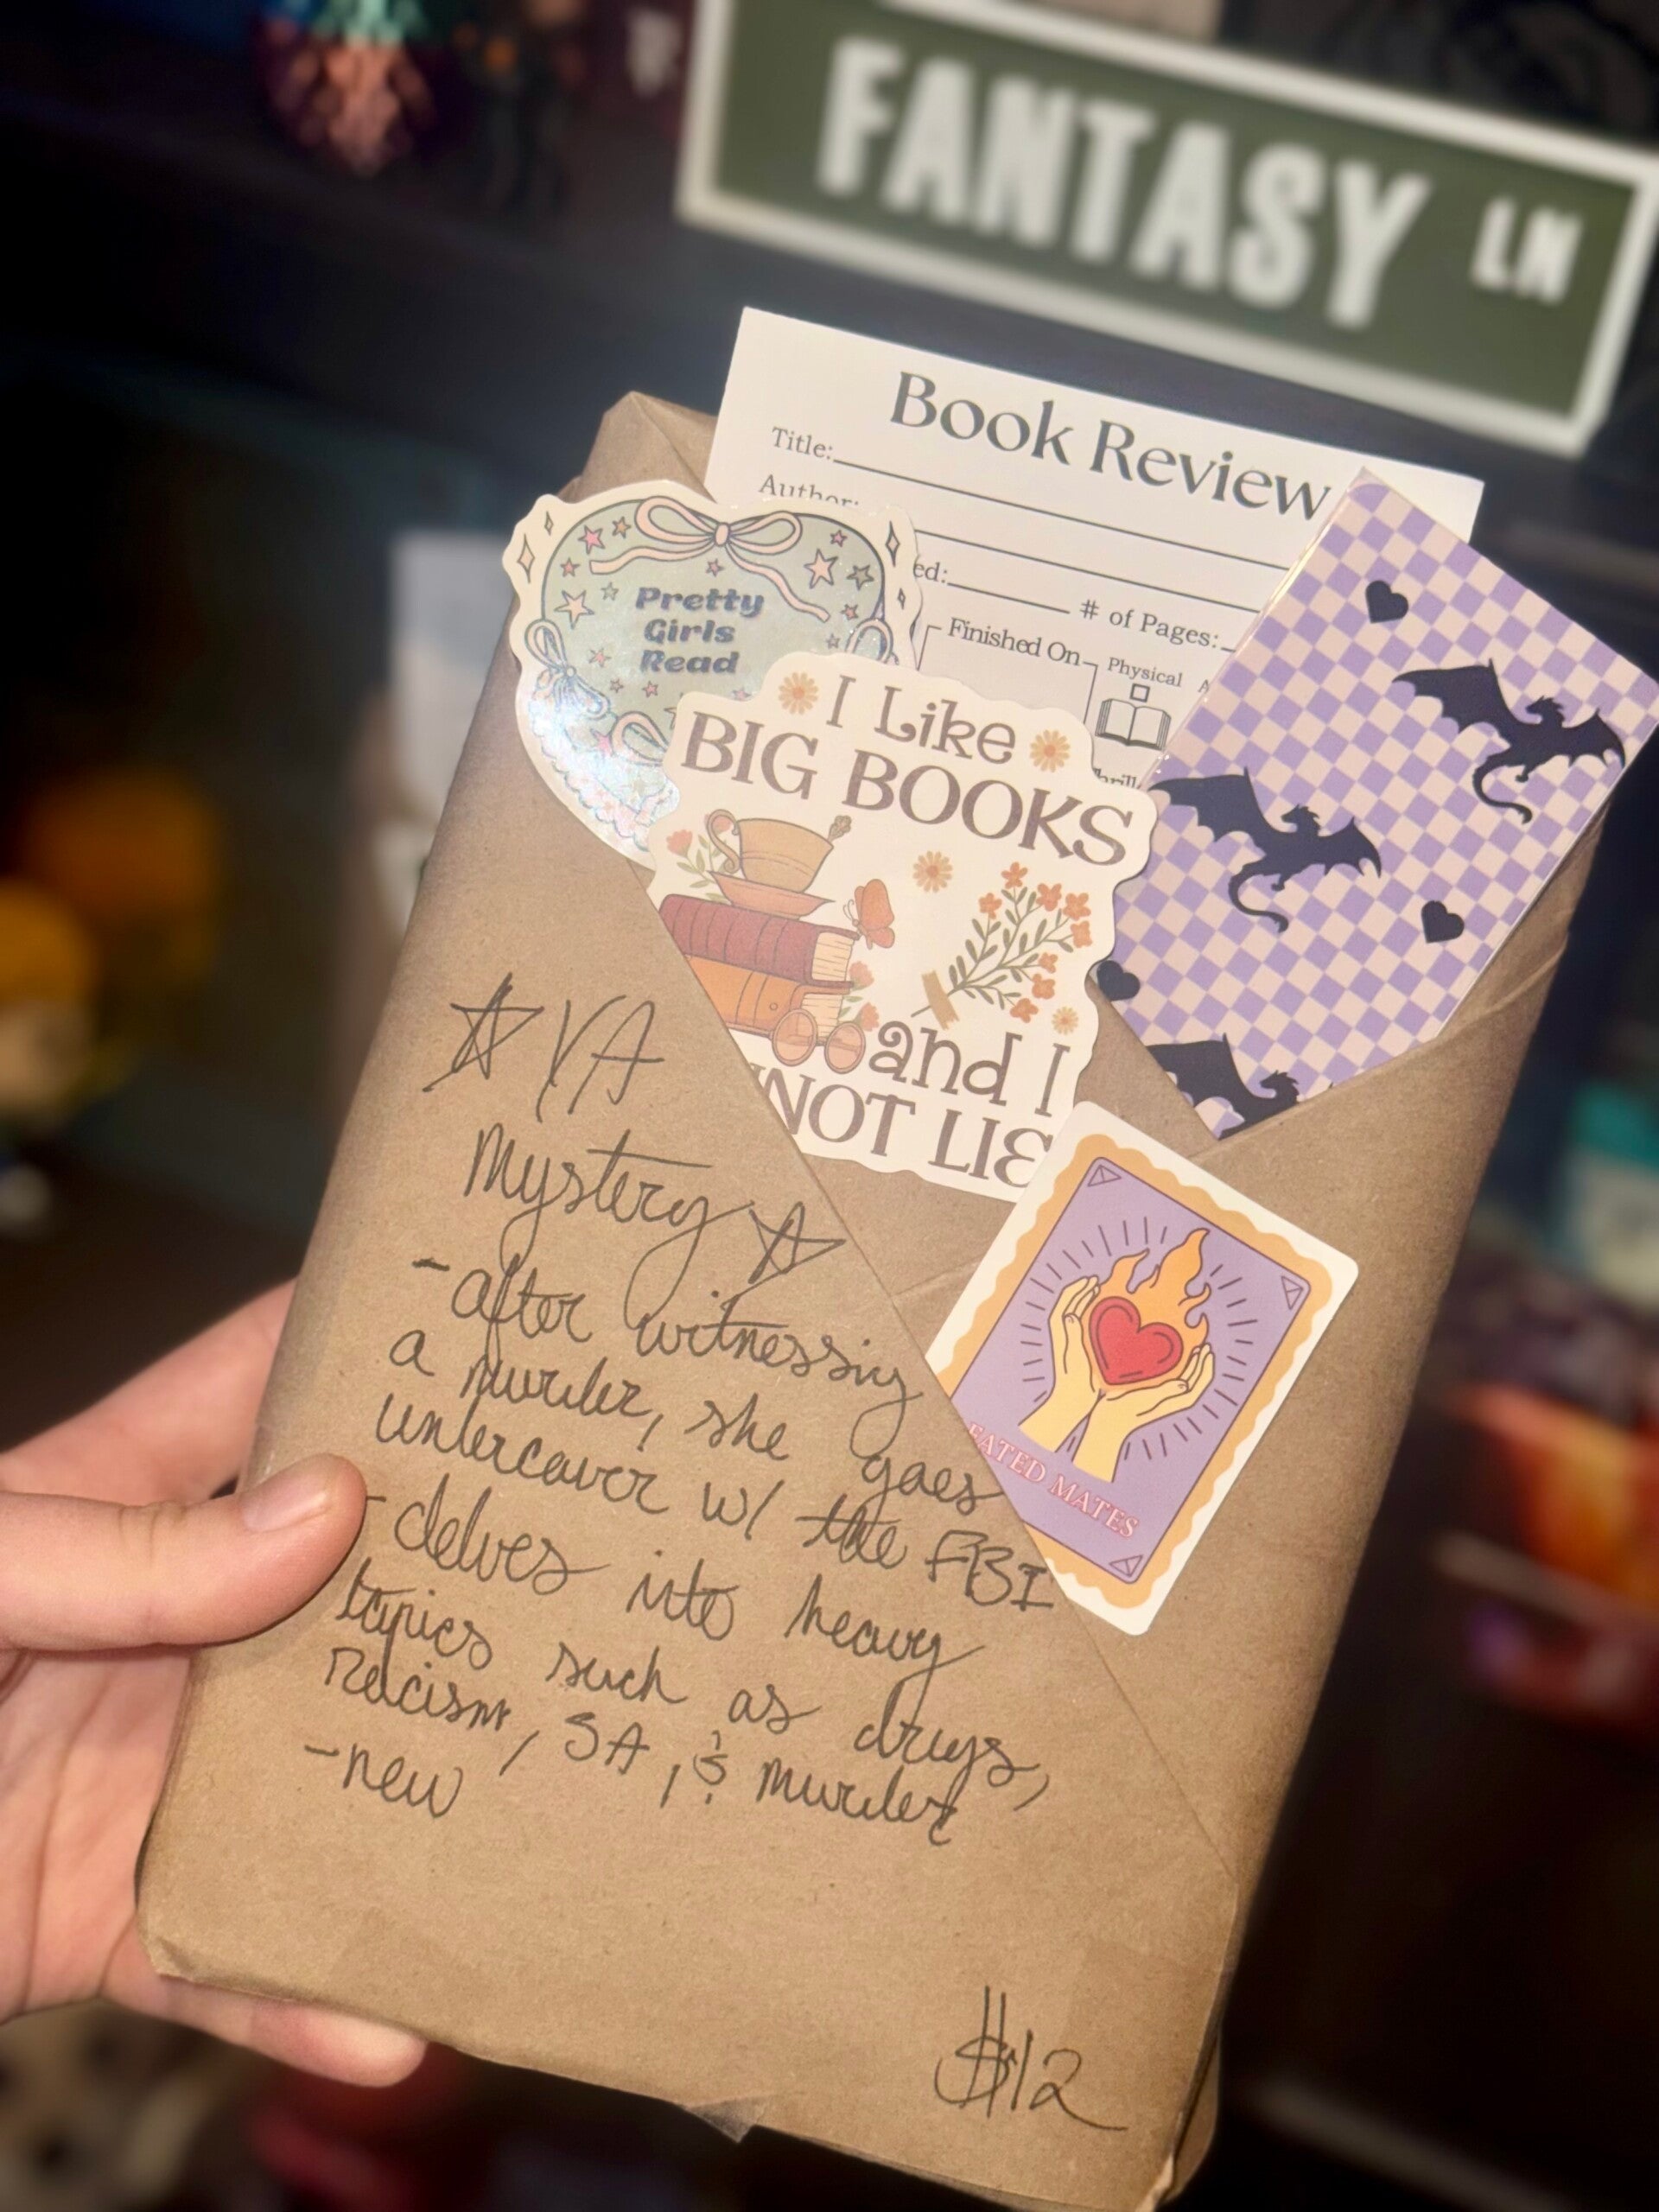 FANTASY LN
Book Review
Title:
Author:
ed:
# of Pages:
Finished On
Physical
A
Pretty
Girls
Read
I Like
BIG BOOKS
and I
NOT LIE
FATED MATES
YA
Mystery
-after witnessig
a murder, she goes
undercover w/ the FBI
-delves into heavy
topics such as drugs,
Racism, SA, & murder
-new
$12